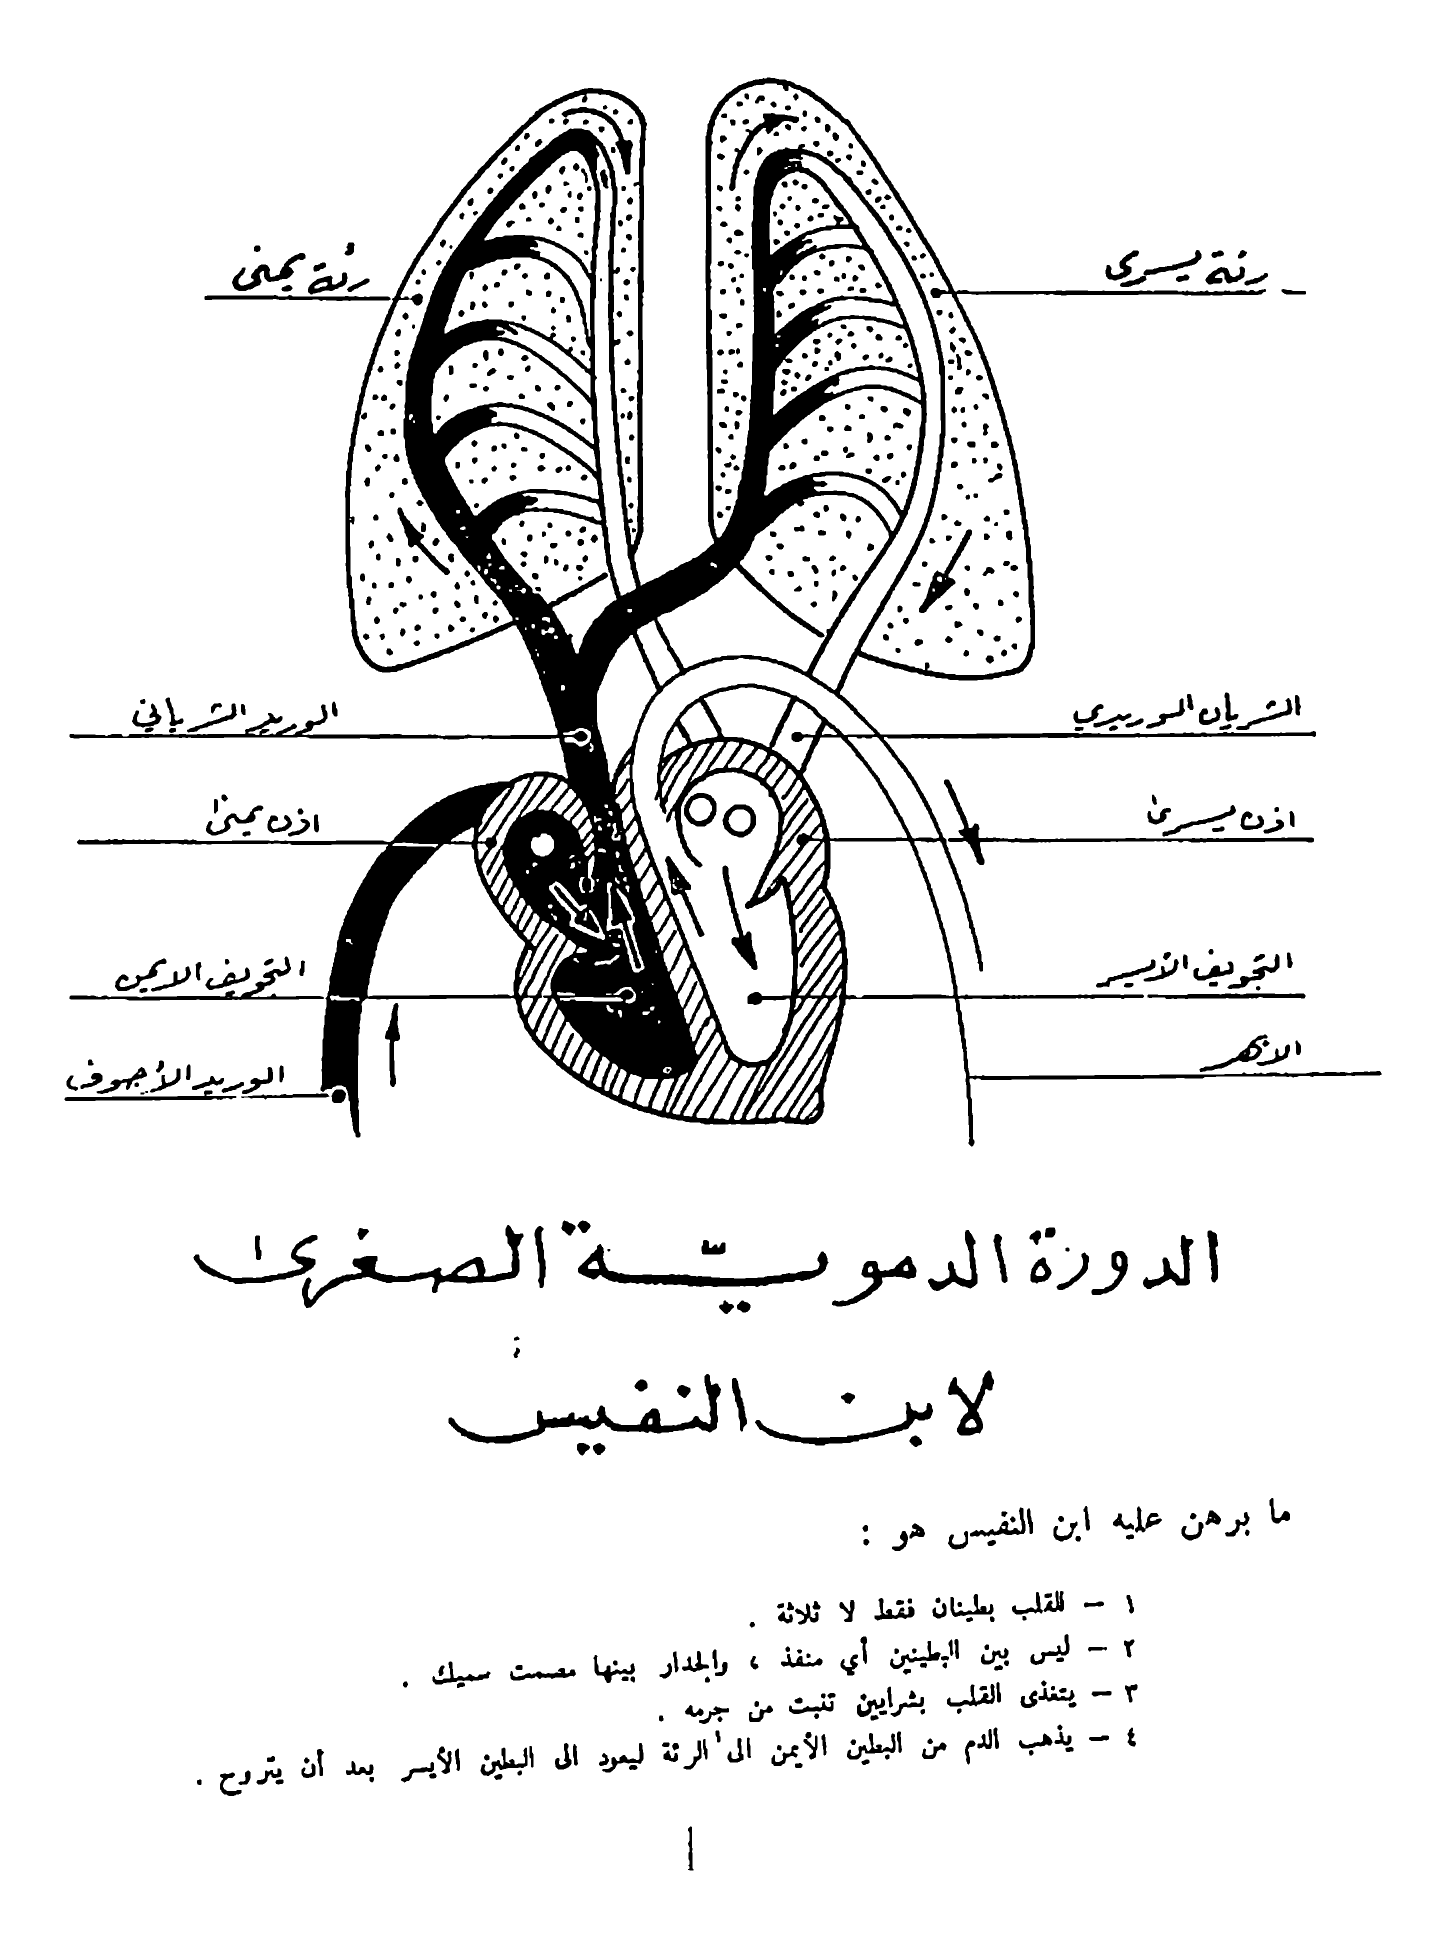 رئة يسرى
رئة يمنى
الشريان الوريدي
الوريد الشرياني
اذن يسرى
اذن يمنى
التجويف الأيسر
التجويف الايمن
الابهر
الوريد الأجوف
الدورة الدموية الصغرى
لابن النفيس
ما برهن عليه ابن النفيس هو :
١ – للقلب بطينان فقط لا ثلاثة .
٢ – ليس بين البطينين أي منفذ ، والجدار بينها مصمت سميك .
٣ – يتغذى القلب بشرايين تنبت من جرمه .
٤ – يذهب الدم من البطين الأيمن الى الرئة ليعود الى البطين الأيسر بعد أن يتروح .